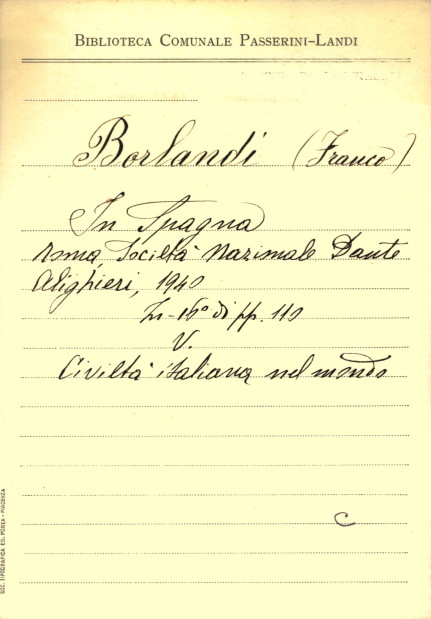 BIBLIOTECA COMUNALE PASSERINI-LANDI
Borlandi (Franco)
In Spagna
Roma, Società Nazionale Dante
Alighieri, 1940
In-16° di pp. 110
V.
Civiltà italiana nel mondo
C
SOC. TIPOGRAFICA ED. PORTA - PIACENZA